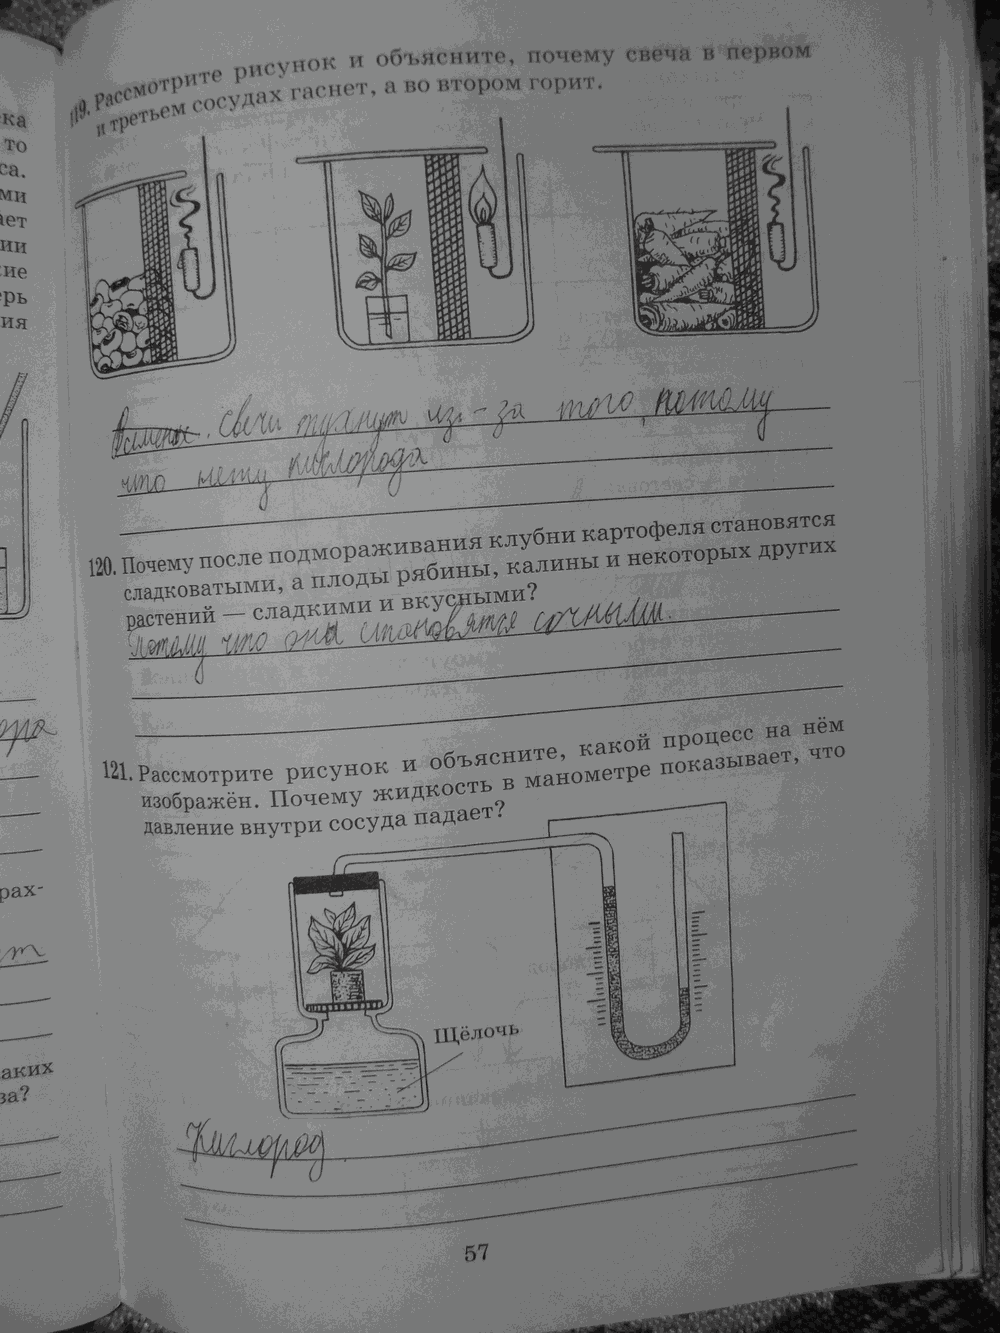 ка
то
са.
ми
ает
ии
кие
ерь
ния
ора
рах-
ет
аких
ва?
119. Рассмотрите рисунок и объясните, почему свеча в первом
и третьем сосудах гаснет, а во втором горит.
Свечи тухнут из-за того, потому
что нету кислорода
120. Почему после подмораживания клубни картофеля становятся
сладковатыми, а плоды рябины, калины и некоторых других
растений — сладкими и вкусными?
Потому что они становятся сочными.
121. Рассмотрите рисунок и объясните, какой процесс на нём
изображён. Почему жидкость в манометре показывает, что
давление внутри сосуда падает?
Щёлочь
Кислород.
57